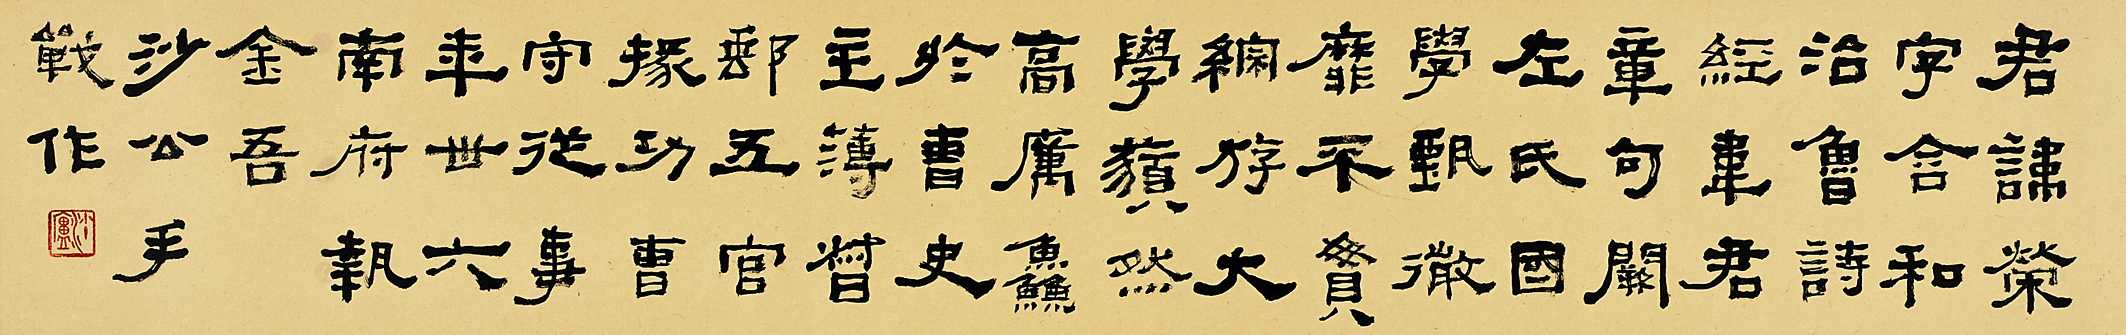 君諱榮
字含和
治魯詩
經韋君
章句闕
左氏國
學甄微
靡不貫
綜斿大
學藐然
高厲鱻
於曹史
主薄督
郵五官
掾功曹
守從事
年卅六
南府執
金吾
沙公手
戰作